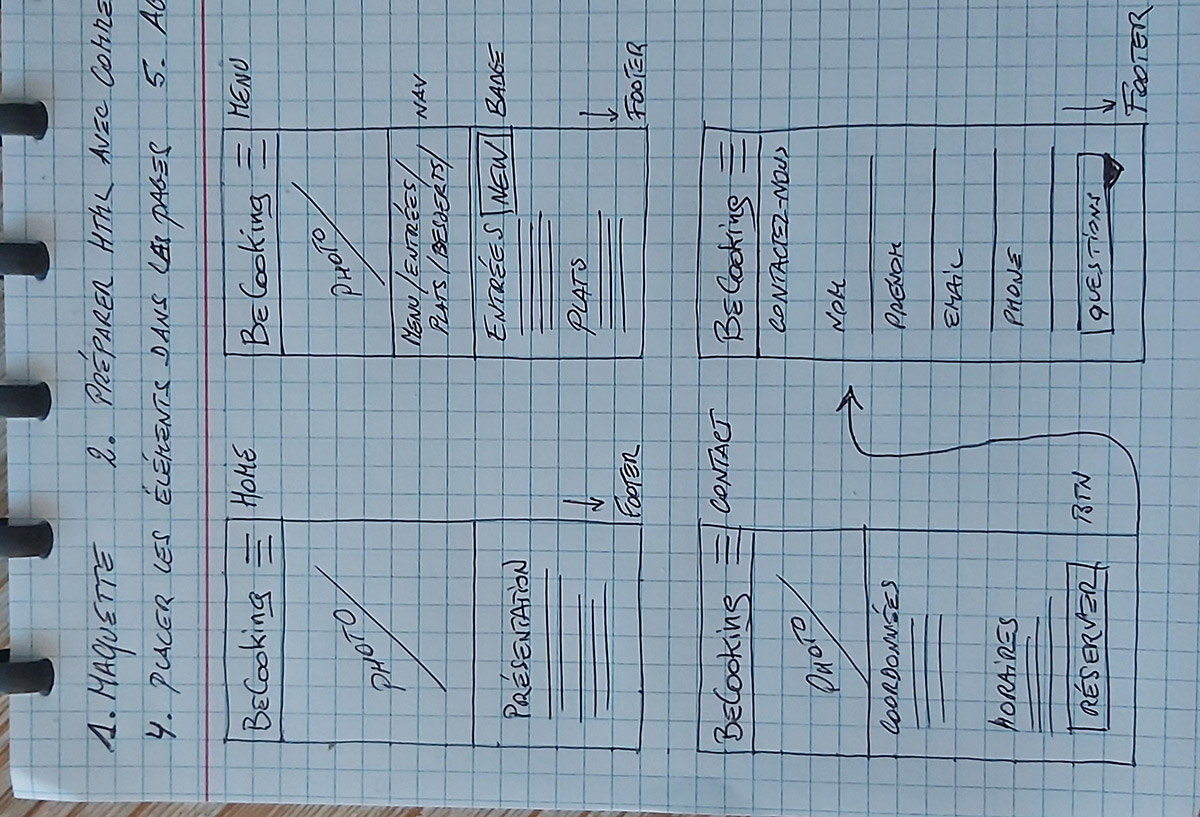 1. MAQUETTE 2. PRÉPARER HTML AVEC
4. PLACER LES ÉLÉMENTS DANS LES PAGES 5.
HOME
BeCooking
PHOTO
PRÉSENTATION
FOOTER
MENU
BeCooking
PHOTO
MENU/ENTRÉES/
PLATS/DESSERTS/
NAV
ENTRÉES NEW
BADGE
PLATS
FOOTER
CONTACT
BeCooking
PHOTO
COORDONNÉES
HORAIRES
RÉSERVER
BTN
BeCooking
CONTACTEZ-NOUS
NOM
PRENOM
EMAIL
PHONE
QUESTIONS
FOOTER